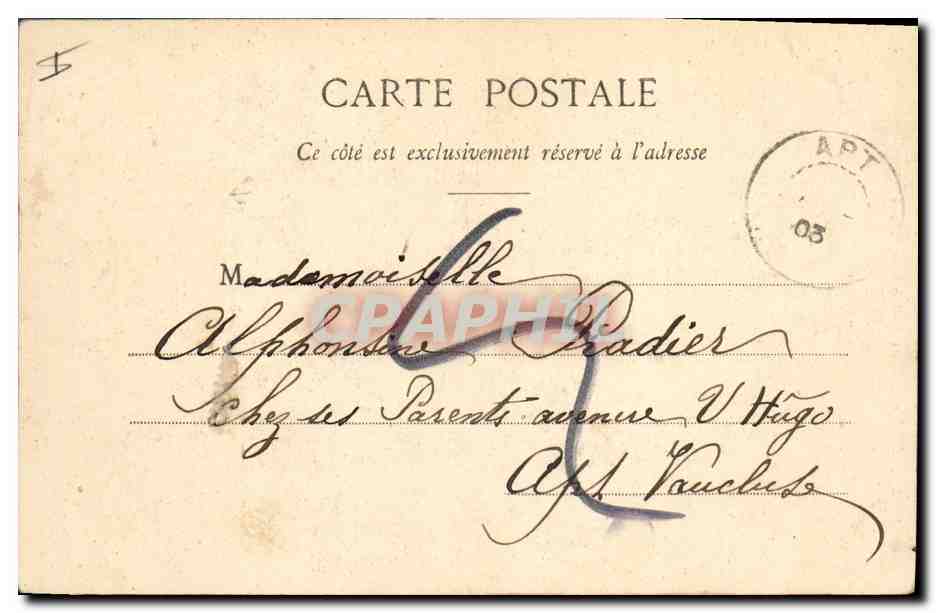 CARTE POSTALE
Ce côté est exclusivement réservé à l'adresse
APT
03
Mademoiselle
CPAPHIL
Alphonsine Pradier
chez ses Parents avenue V Hugo
Apt Vaucluse